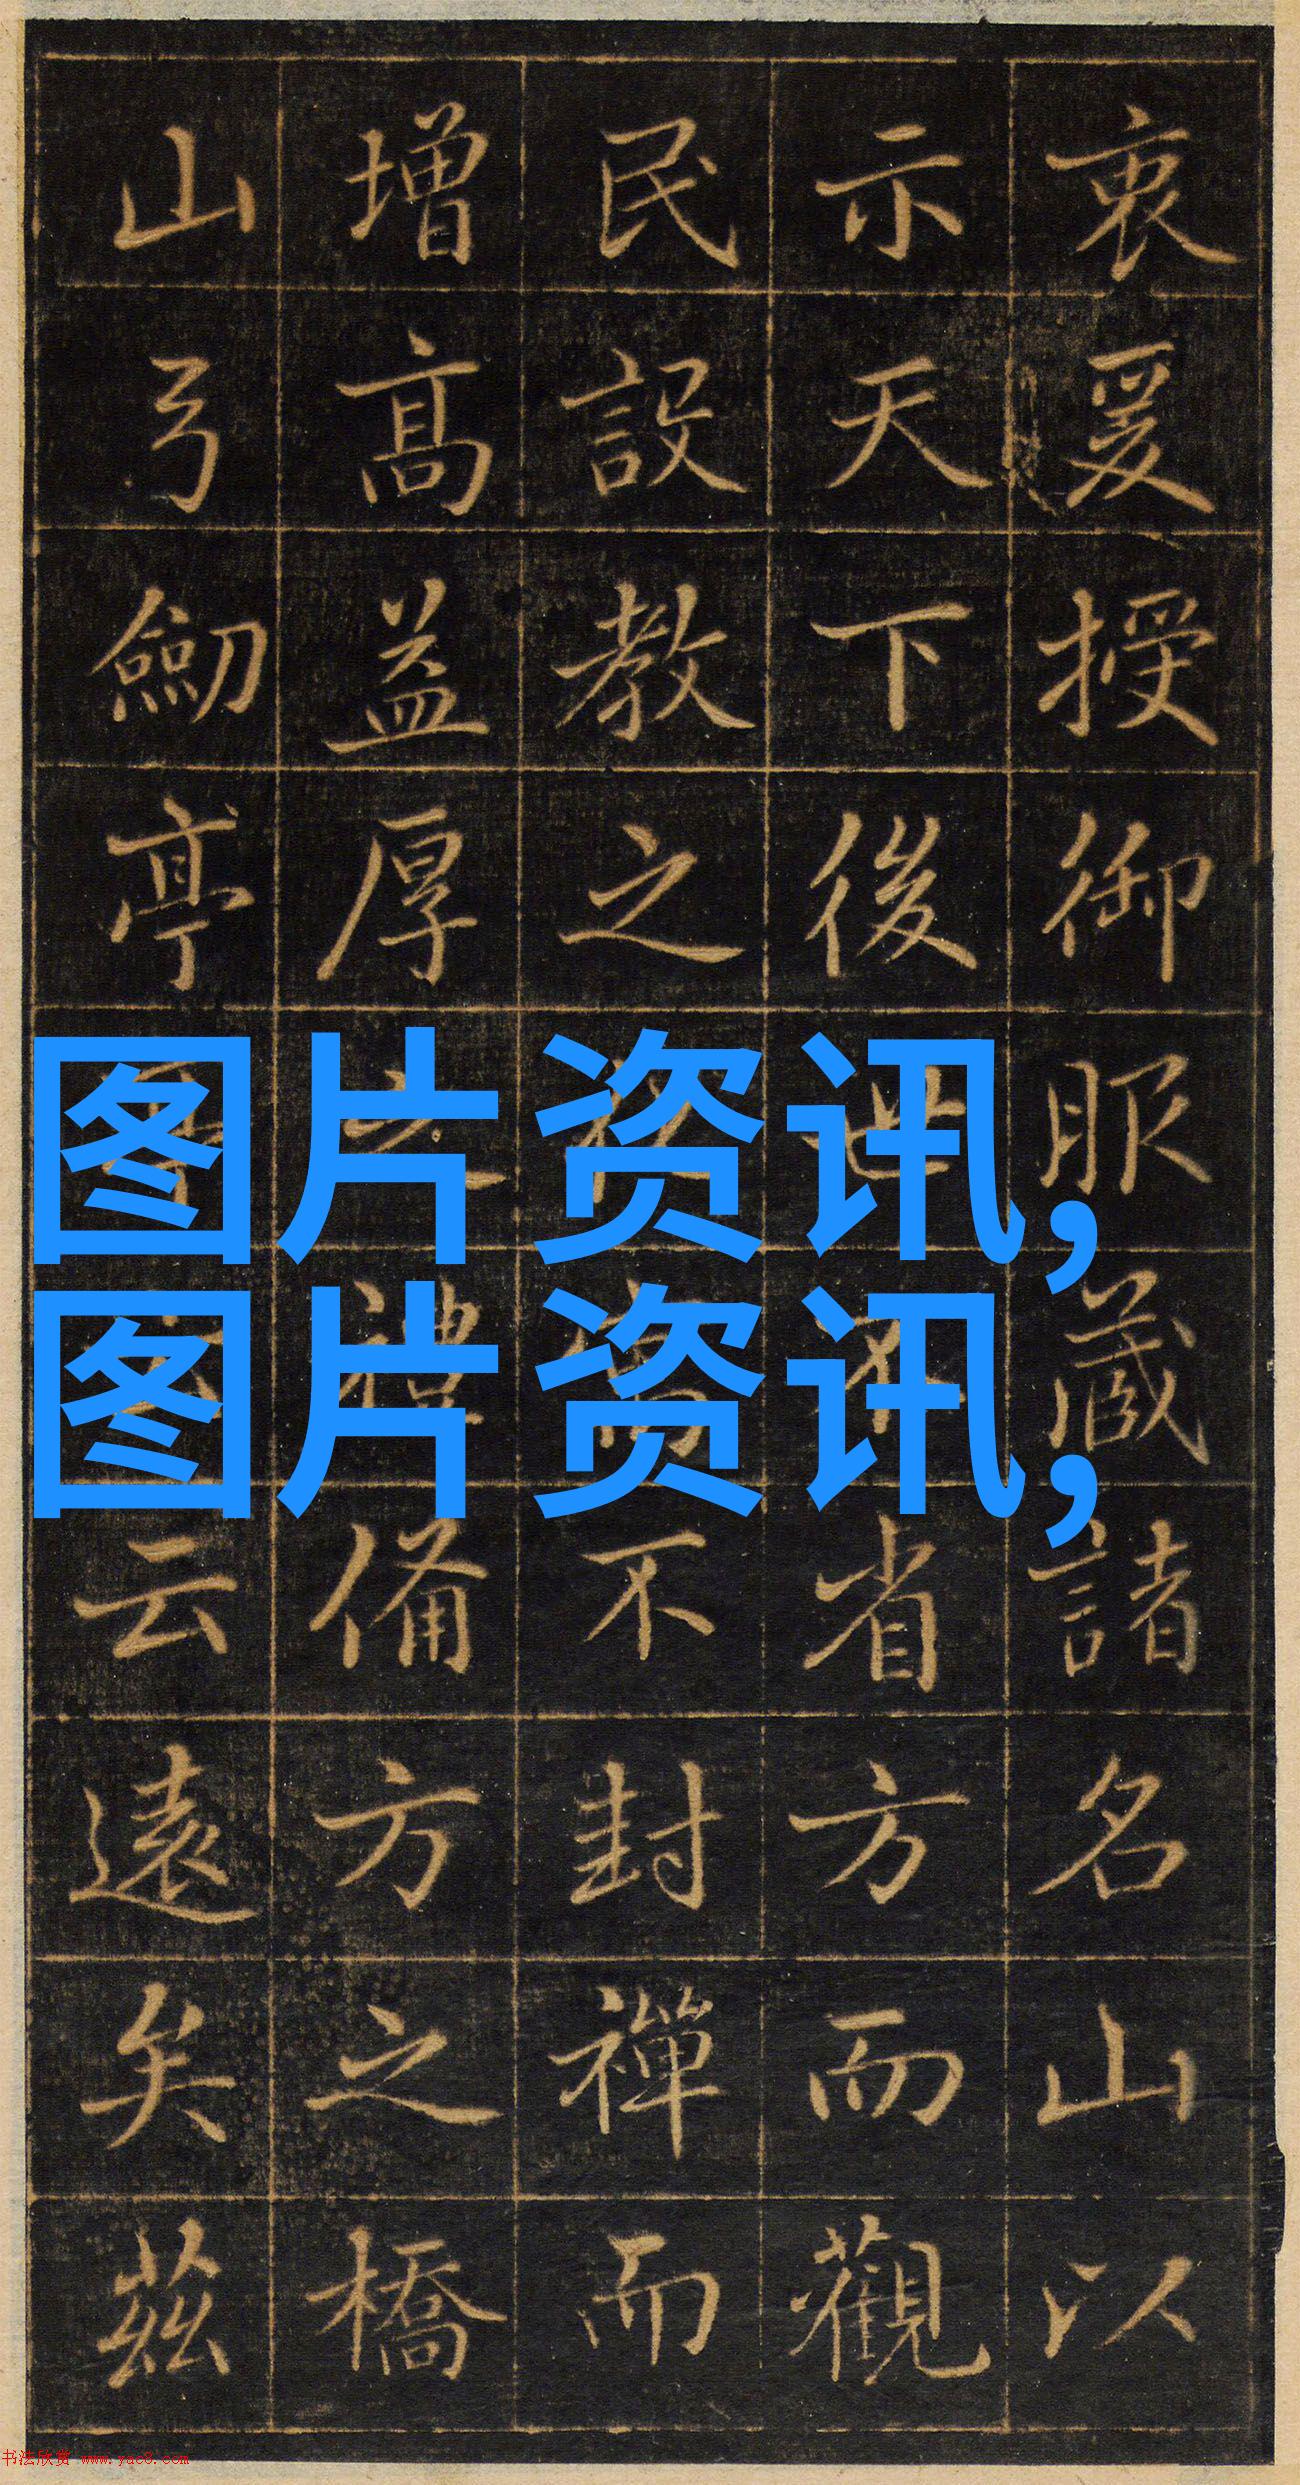 衷爰授御服藏諸名山以
示天下後世省方而觀
民設教之不封禪而
增高益厚之禮備方之橋
山弓劒亭云遠矣茲
图片资讯,
图片资讯,
书法欣赏 www.yac8.com